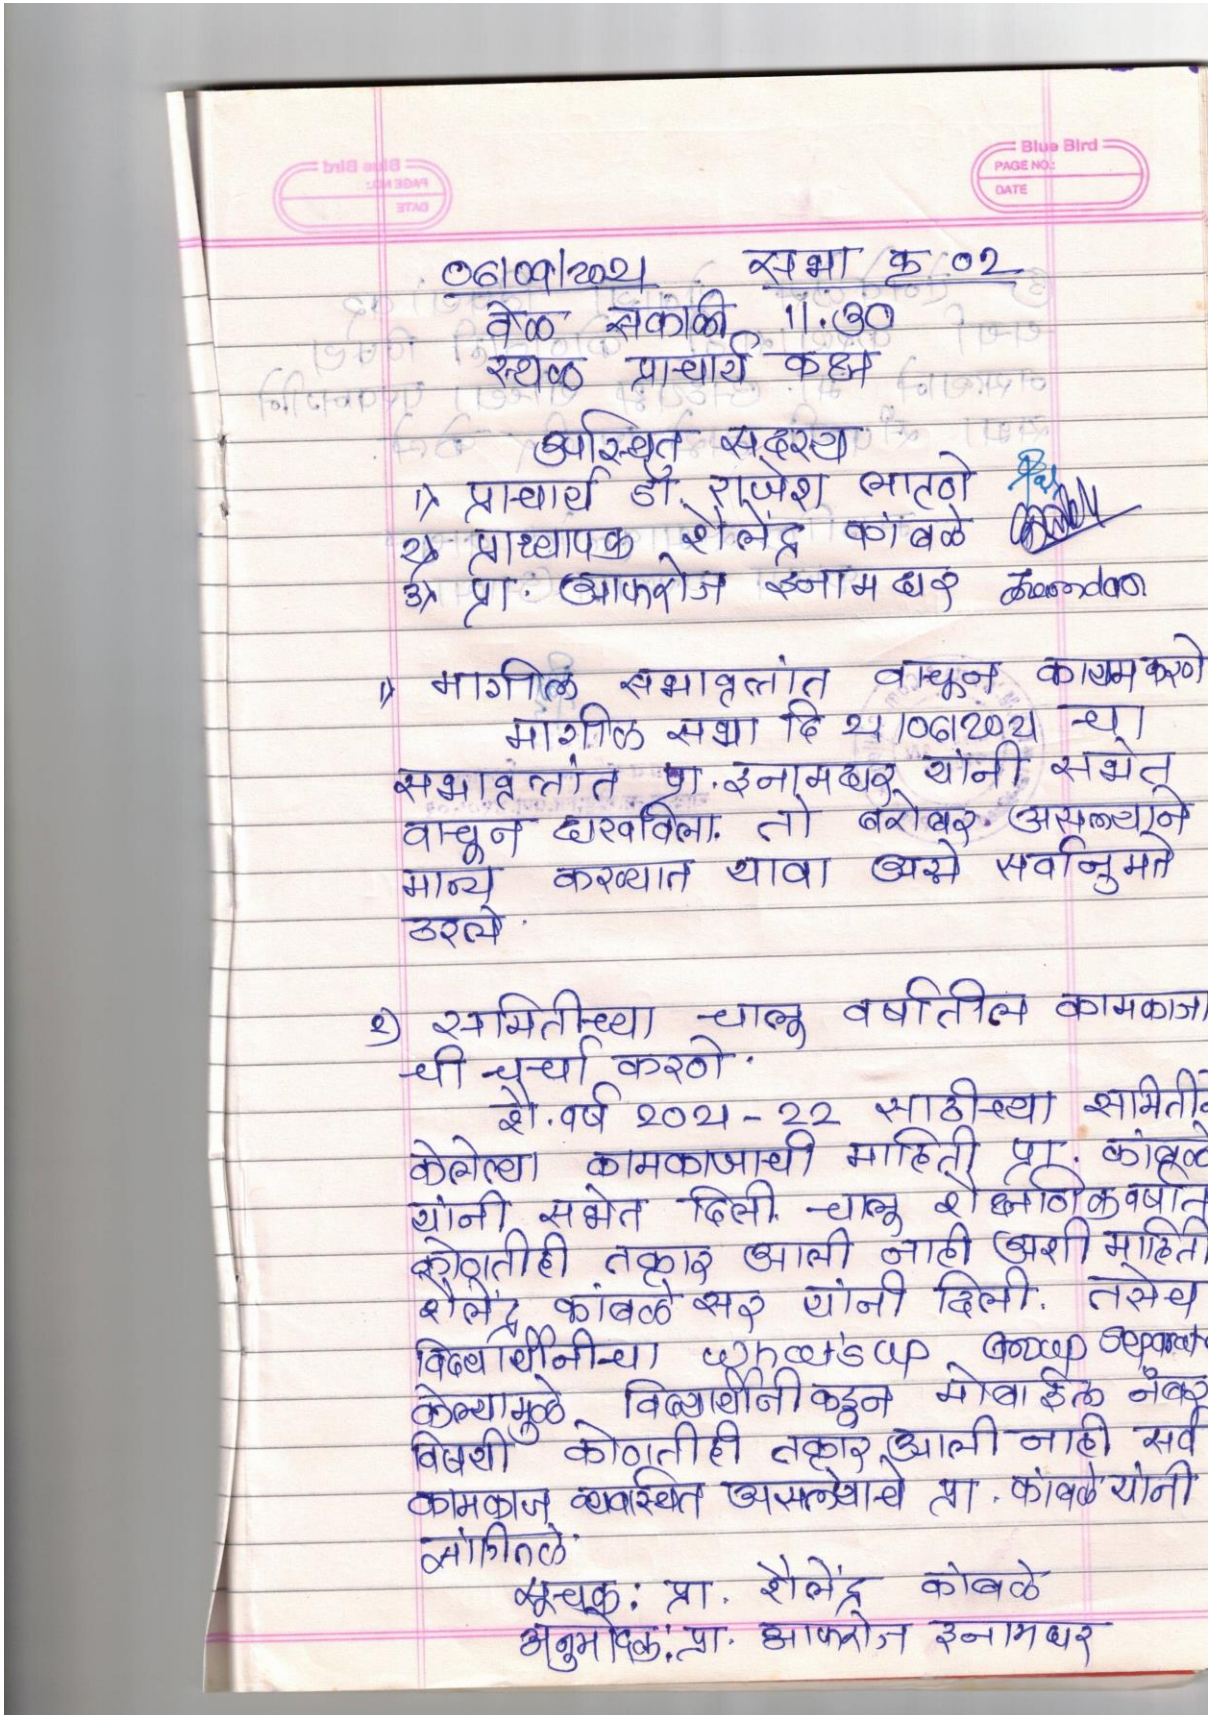 Blue Bird
PAGE NO.:
DATE
०६/०९/२०२१ सभा क्र ०२
वेळ सकाळी ११.३०
स्थळ प्राचार्य कक्ष
उपस्थित सदस्य
१) प्राचार्य डॉ. राजेश भातणे
२) प्राध्यापक शैलेंद्र कांबळे
३) प्रा. आफरोज इनामदार Inamdar
१) मागील सभावृत्तांत वाचून कायम करणे
मागील सभा दि २१/०६/२०२१ चा
सभावृत्तांत प्रा. इनामदार यांनी सभेत
वाचून दाखविला. तो बरोबर असल्याने
मान्य करण्यात यावा असे सर्वानुमते
ठरले.
२) समितीच्या चालू वर्षातील कामकाजा
ची चर्चा करणे.
शै. वर्ष २०२१ - २२ साठीच्या समितीने
केलेल्या कामकाजाची माहिती प्रा. कांबळे
यांनी सभेत दिली. चालू शैक्षणिक वर्षात
कोणतीही तक्रार आली नाही अशी माहिती
शैलेंद्र कांबळे सर यांनी दिली. तसेच
विद्यार्थीनीचा whats'up Group Separate
केल्यामुळे विद्यार्थीनीकडून मोबाईल नंबर
विषयी कोणतीही तक्रार आली नाही सर्व
कामकाज व्यवस्थित असलेचे प्रा. कांबळे यांनी
सांगितले.
सूचक: प्रा. शैलेंद्र कांबळे
अनुमोदक: प्रा. आफरोज इनामदार